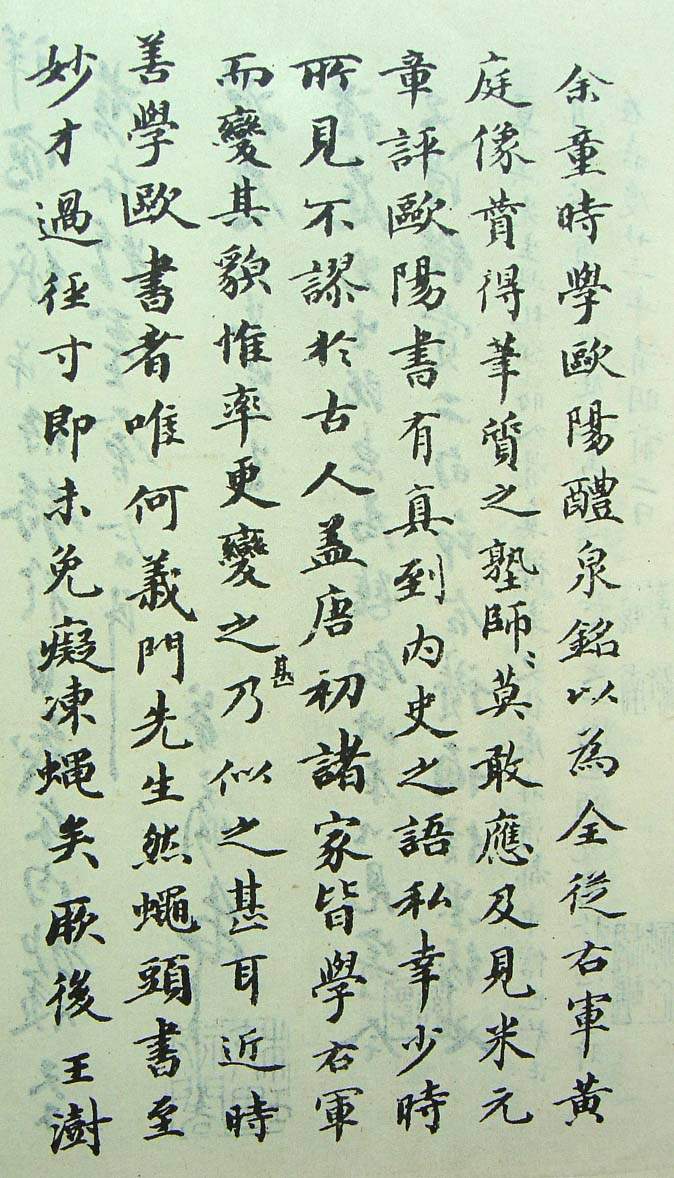 余童時學歐陽醴泉銘以為全從右軍黃
庭像賛得筆質之塾師〻莫敢應及見米元
章評歐陽書有真到內史之語私幸少時
所見不謬於古人蓋唐初諸家皆學右軍
而變其貌惟率更變之乃甚似之甚耳近時
善學歐書者唯何義門先生然蠅頭書至
妙才過徑寸即未免癡凍蝇矣厥後王澍